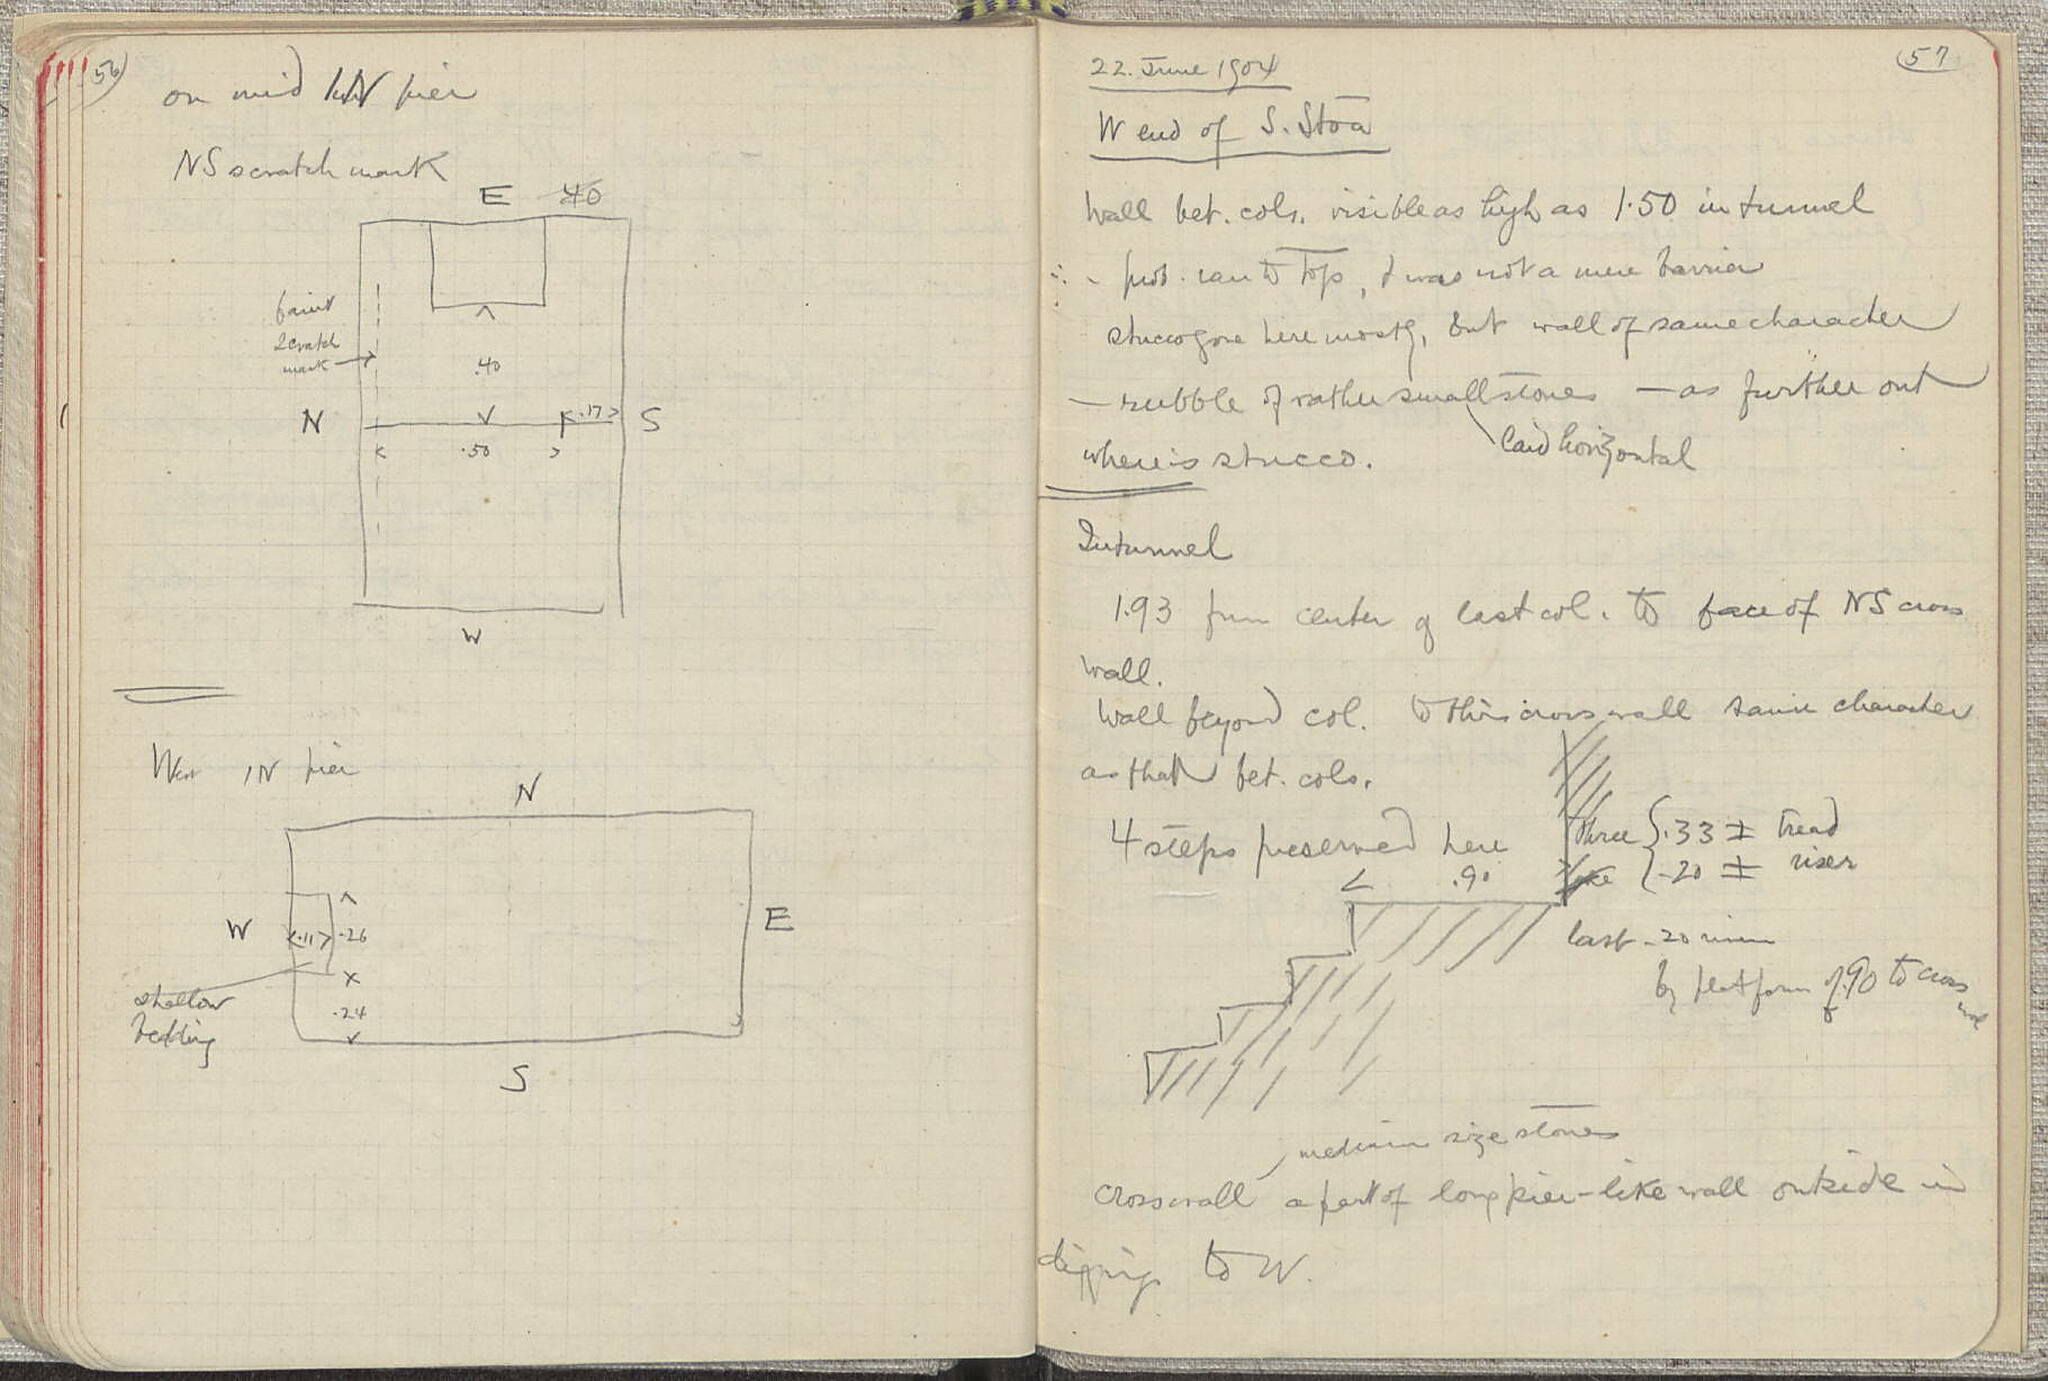 56
on mid NW pier
NS scratch mark
E 40
faint
scratch
mark
.40
N
.17
S
.50
W
West IN pier
N
W
.11
.26
E
shallow
bedding
.24
S
57
22. June 1904
W end of S. Stoa
Wall bet. cols. visible as high as 1.50 in tunnel
∴ prob. ran to top, & was not a mere barrier
stucco gone here mostly, but wall of same character
— rubble of rather small stones — as further out
laid horizontal
where is stucco.
In tunnel
1.93 from center of last col. to face of NS cross
wall.
Wall beyond col. to this cross wall same character
as that bet. cols.
4 steps preserved here
three .33 ± tread
.20 ± riser
.90
last .20 riser
by platform of .90 to cross
wall
medium size stones
Cross wall a part of long pier-like wall outside in
digging to W.